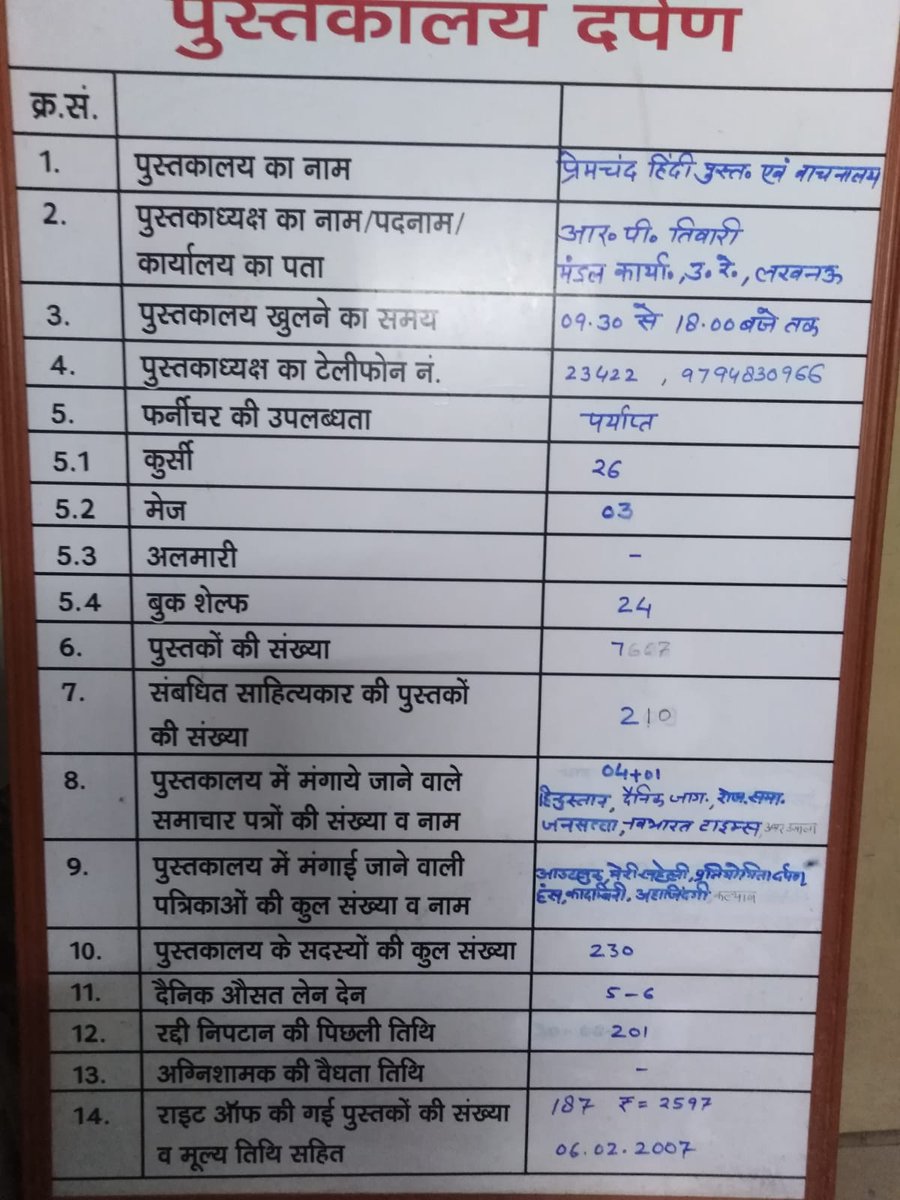 पुस्तकालय दर्पण
क्र.सं.
1. पुस्तकालय का नाम प्रेमचंद हिंदी पुस्त॰ एवं वाचनालय
2. पुस्तकाध्यक्ष का नाम/पदनाम/ आर॰ पी॰ तिवारी
कार्यालय का पता मंडल कार्या॰, उ॰ रे॰, लखनऊ
3. पुस्तकालय खुलने का समय 09.30 से 18.00 बजे तक
4. पुस्तकाध्यक्ष का टेलीफोन नं. 23422 , 9794830966
5. फर्नीचर की उपलब्धता पर्याप्त
5.1 कुर्सी 26
5.2 मेज 03
5.3 अलमारी -
5.4 बुक शेल्फ 24
6. पुस्तकों की संख्या
7. संबधित साहित्यकार की पुस्तकों
की संख्या 210
8. पुस्तकालय में मंगाये जाने वाले 04+01
हिंदुस्तान, दैनिक जाग॰,
समाचार पत्रों की संख्या व नाम जनसत्ता, नवभारत टाइम्स,
9. पुस्तकालय में मंगाई जाने वाली मेरी सहेली, प्रतियोगिता दर्पण
पत्रिकाओं की कुल संख्या व नाम हंस, कादम्बिनी, कल्याण
10. पुस्तकालय के सदस्यों की कुल संख्या 230
11. दैनिक औसत लेन देन 5-6
12. रद्दी निपटान की पिछली तिथि 201
13. अग्निशामक की वैधता तिथि -
14. राइट ऑफ की गई पुस्तकों की संख्या 187 ₹= 2597
व मूल्य तिथि सहित 06.02.2007